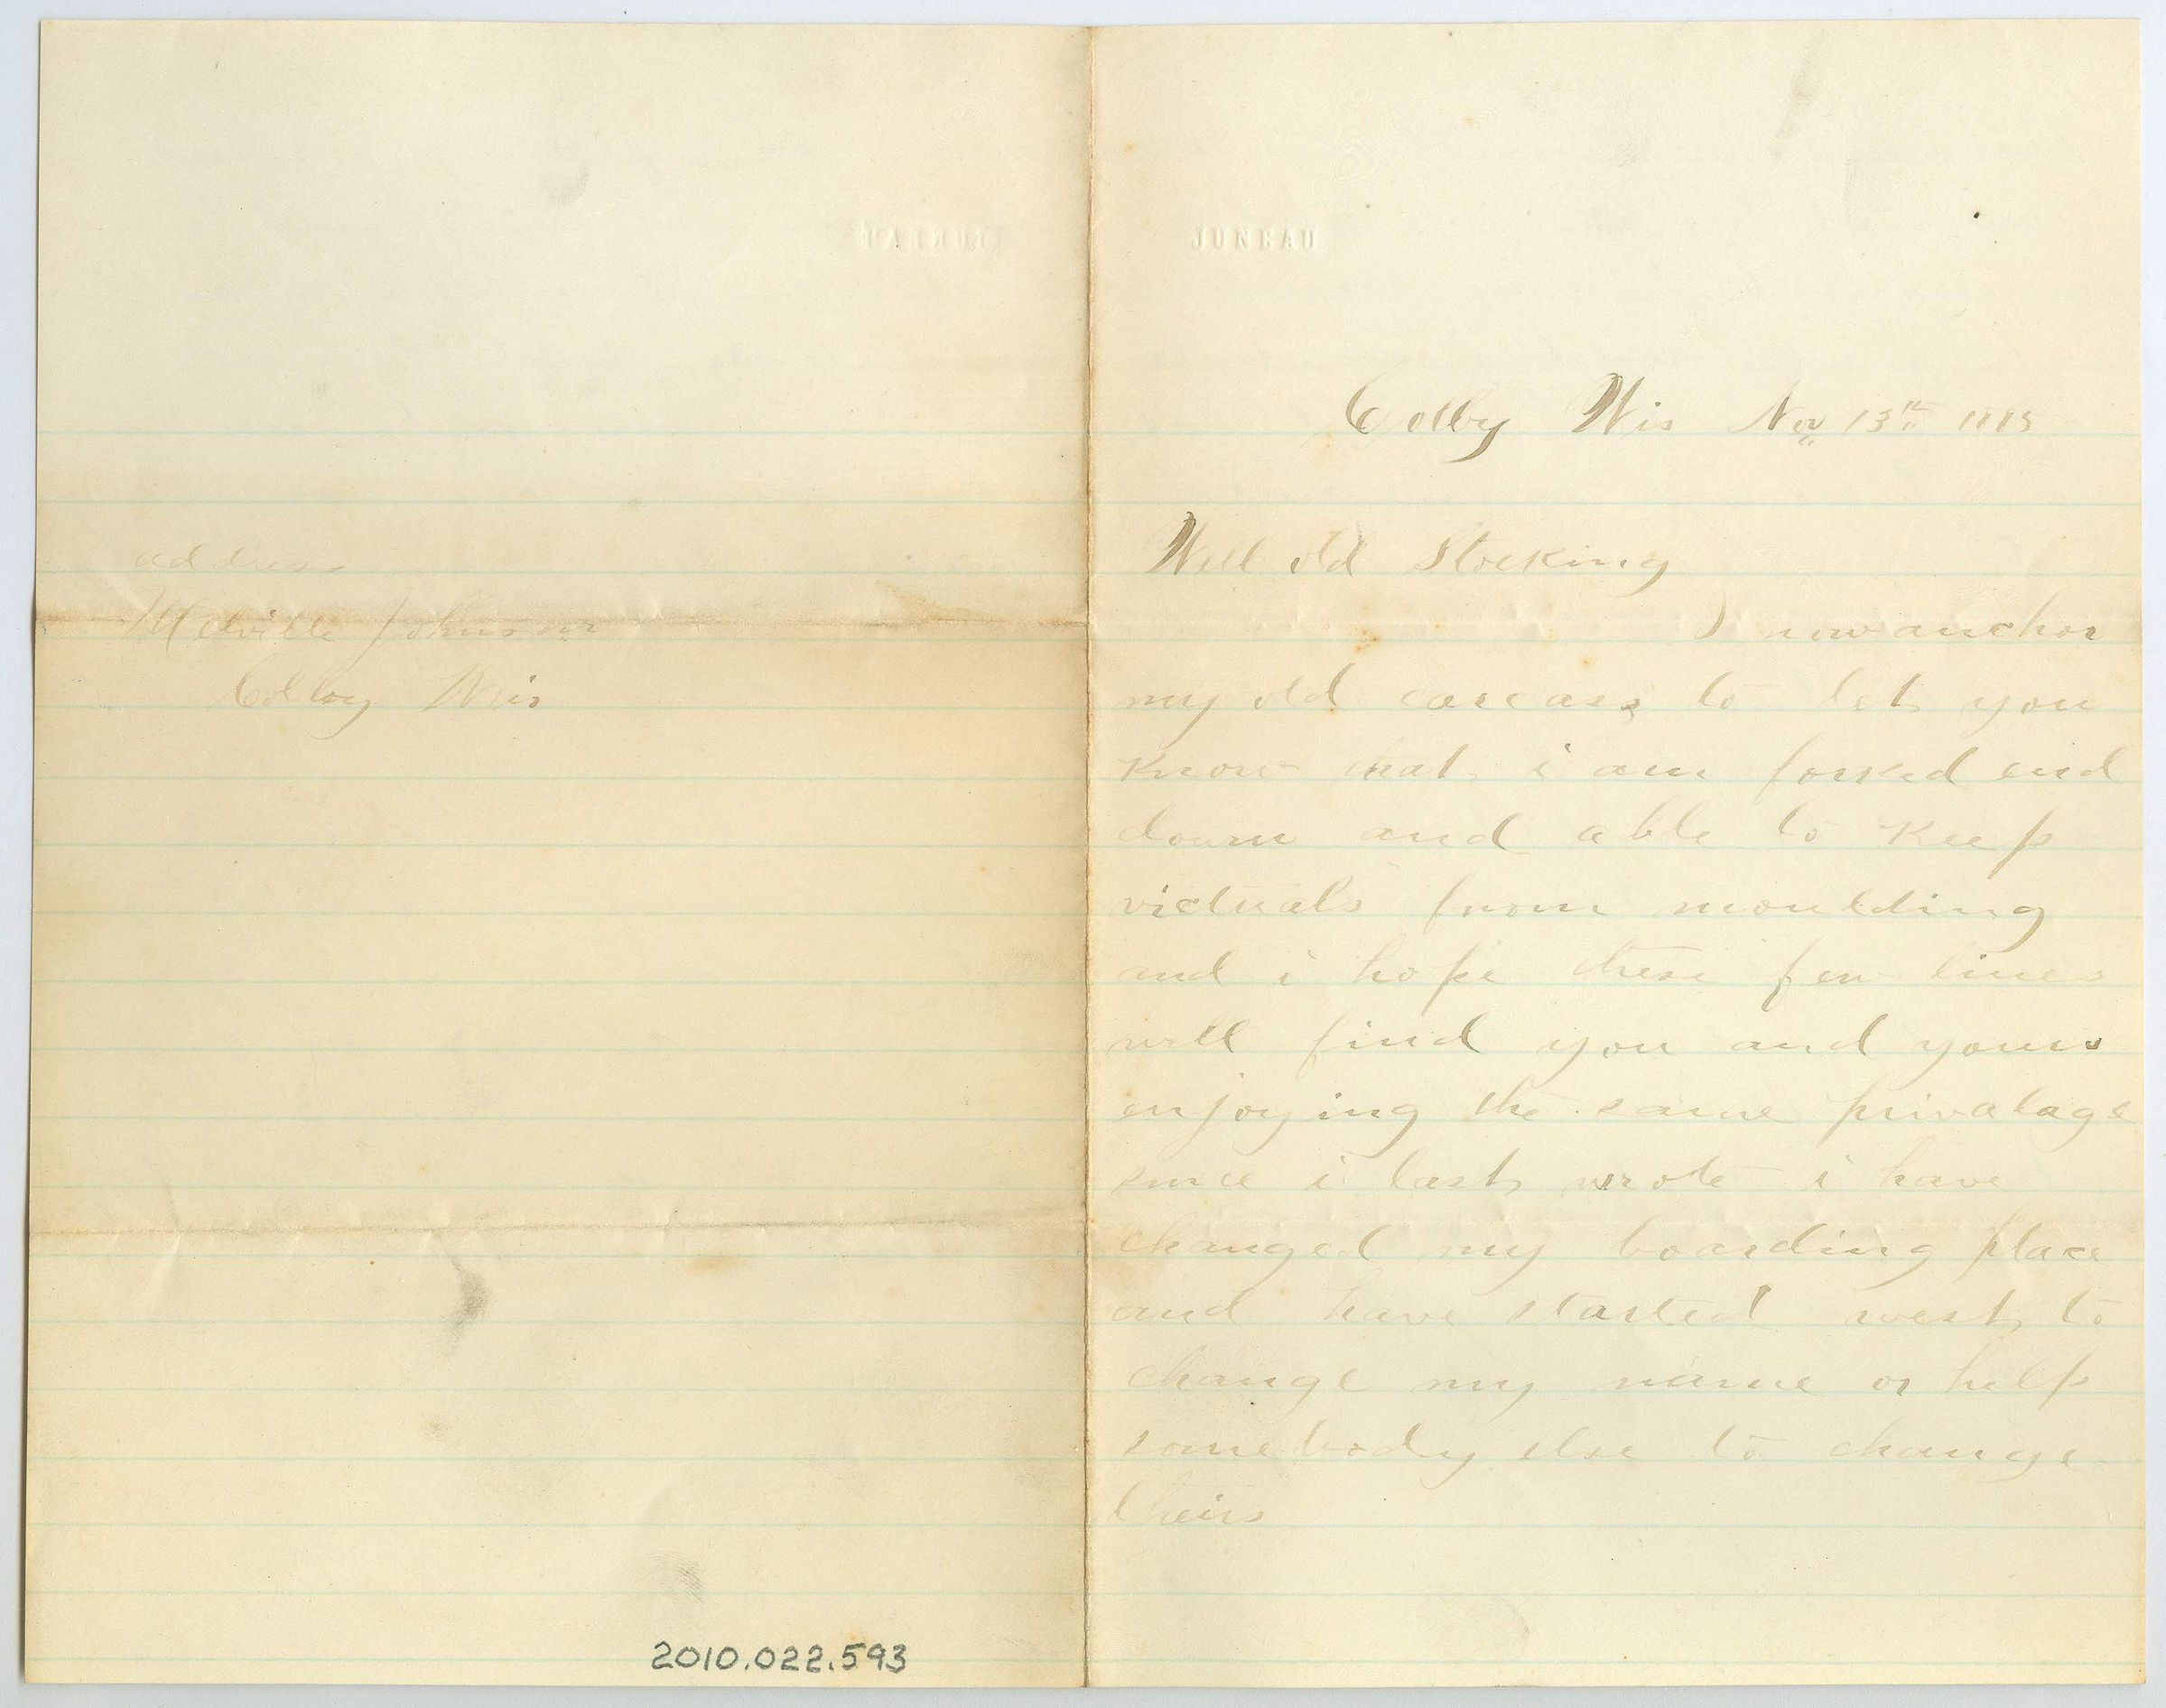 address
Melville Johnson
Colby Wis
2010.022.593
JUNEAU
Colby Wis Nov 13th
Well old Stocking
I now anchor
my old carcass to let you
know that i am forked end
down and able to keep
victuals from moulding
and i hope these few lines
will find you and yours
enjoying the same privalage
since i last wrote i have
changed my boarding place
and have started west to
change my name or help
somebody else to change
theirs